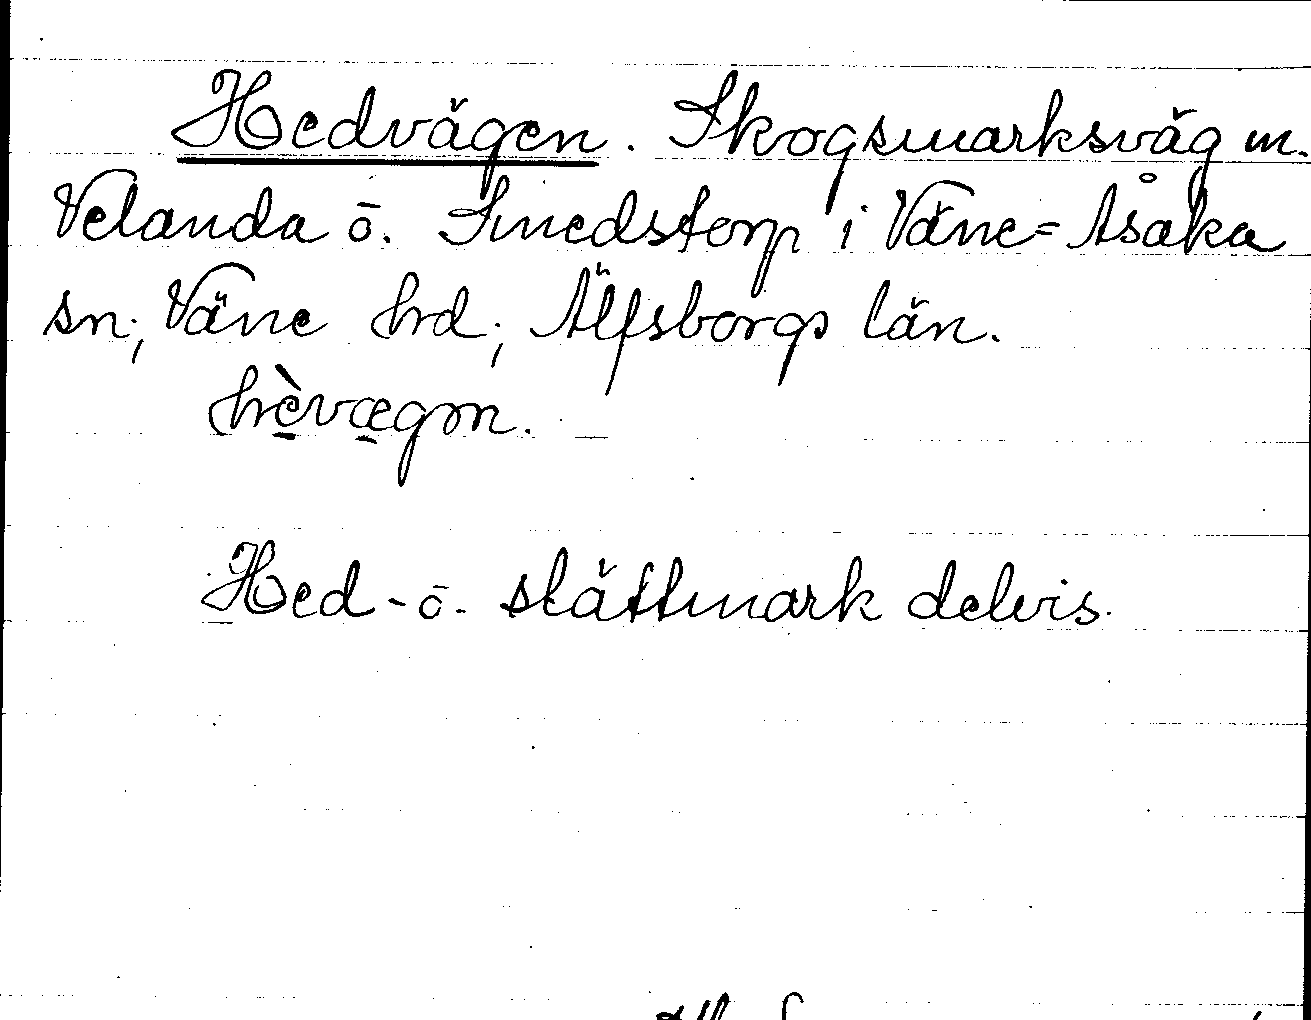 Hedvägen. Skogsmarksväg m.
Velanda ō. Smedstorp i Väne=Åsaka
sn; Väne hrd; Älfsborgs län.
hèvægən.
Hed- ō. slättmark delvis.